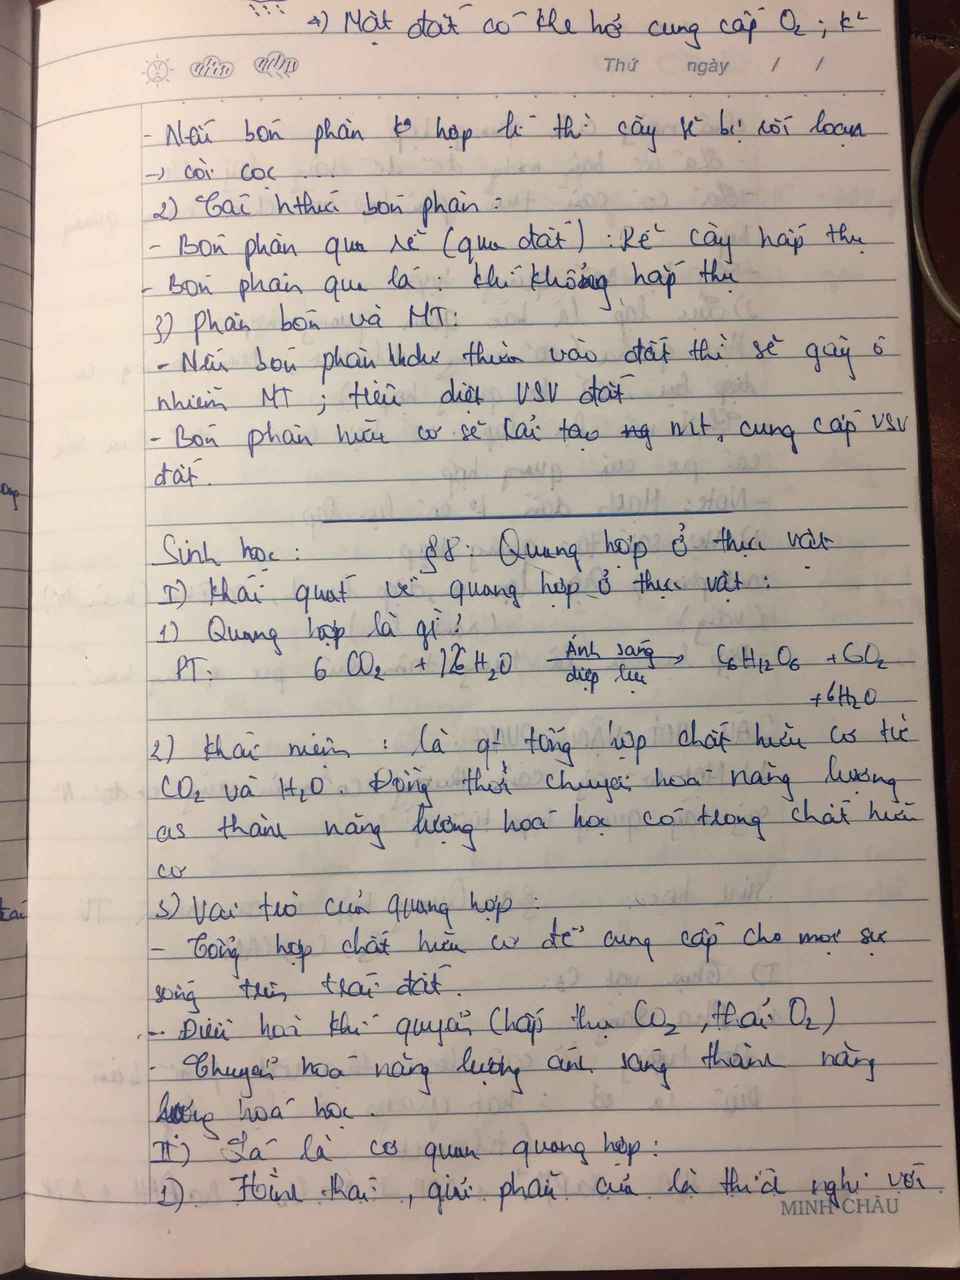 →) Mặt đất có khe hở cung cấp O2 ; k²
Thứ ngày / /
- Nếu bón phân k hợp lí thì cây sẽ bị rối loạn
→ còi cọc
2) Các hthức bón phân :
- Bón phân qua rễ (qua đất) : Rễ cây hấp thụ
- Bón phân qua lá : khí khổng hấp thụ
3) Phân bón và MT:
- Nếu bón phân dư thừa vào đất thì sẽ gây ô
nhiễm MT ; tiêu diệt VSV đất
- Bón phân hữu cơ sẽ cải tạo mt, cung cấp VSV
đất.
Sinh học : §8: Quang hợp ở thực vật
I) Khái quát về quang hợp ở thực vật :
1) Quang hợp là gì?
PT: 6 CO2 + 12 H2O Ánh sáng diệp lục → C6H12O6 + 6O2
+ 6H2O
2) Khái niệm : là qt tổng hợp chất hữu cơ từ
CO2 và H2O. Đồng thời chuyển hoá năng lượng
as thành năng lượng hoá học có trong chất hữu
cơ
3) Vai trò của quang hợp :
- Tổng hợp chất hữu cơ để cung cấp cho mọi sự
sống trên trái đất.
- Điều hoà khí quyển (hấp thụ CO2, thải O2)
- Chuyển hoá năng lượng ánh sáng thành năng
lượng hoá học.
II) Lá là cơ quan quang hợp :
1) Hình thái, giải phẫu của lá thích nghi với
MINH CHÂU